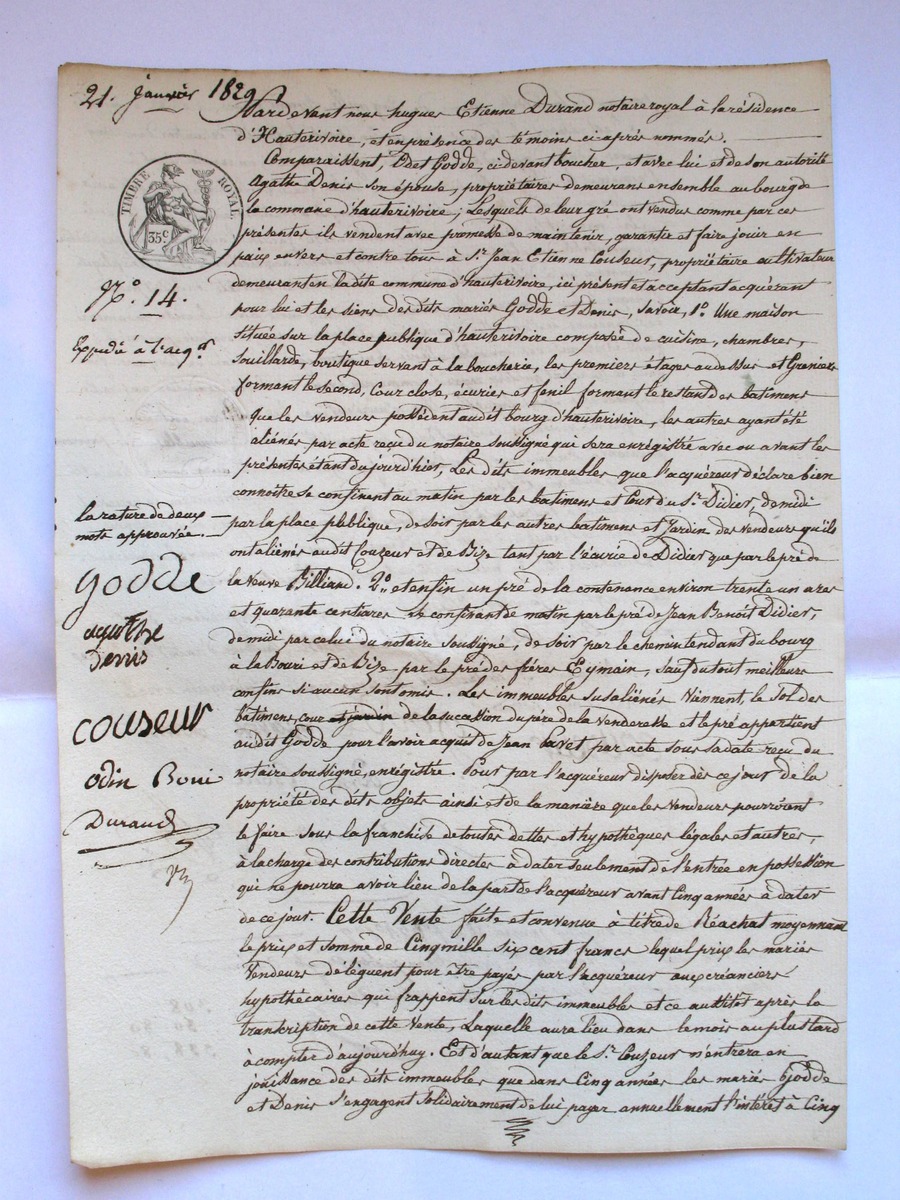 21. janvier 1829
Pardevant nous hugues Etienne Durand notaire royal à la résidence
d'Hauterivoire, et en présence des témoins ci après nommés.
Comparaissent, Odet Godde, cidevant boucher, et avec lui et de son autorité
agathe Denis son épouse, propriétaires demeurans ensemble au bourg de
la commune d'hauterivoire; Lesquels de leur gré ont vendus comme par ces
présentes ils vendent avec promesse de maintenir, garantir et faire jouir en
paix envers et contre tous à Sr. Jean Etienne Couseur, propriétaire cultivateur
demeurant en la dite commune d'hauterivoire, ici présent et acceptant acquérant
pour lui et les siens des dits mariés Godde et Denis, Savoir, 1o. Une maison
située sur la place publique d'hauterivoire composée de cuisine, chambres,
Souillarde, boutique servant à la boucherie, les premiers étages au dessus et Greniers
formant le second, Cour close, écuries et fenil formant le restant des batimens
que les vendeurs possèdent audit bourg d'hauterivoire, les autres ayant été
aliénés par acte reçu du notaire soussigné qui sera enregistré avec ou avant les
présentes étant du jourd'hier, Les dits immeubles que l'acquéreur déclare bien
connoitre se confinent au matin par les batimens et Cour du Sr. Didier, de midi
par la place publique, de soir par les autres batimens et Jardin des vendeurs qu'ils
ont aliénés audit Couzeur et de Bize tant par l'écurie de Didier que par le pré de
la veuve Billiand. 2o. et enfin un pré de la contenance environ trente un ares
et quarante centiares se confinant de matin par le pré de Jean Benoit Didier,
de midi par celui du notaire soussigné, de soir par le chemin tendant du bourg
à la Bouri et de Bize par le pré des frères Eymain, sauf du tout meilleurs
confins si aucun sont omis. Les immeubles susaliénés Viennent, le Sol des
batimens, cour et jardin de la succession du père de la Venderesse et le pré appartient
audit Godde pour l'avoir acquit de Jean Favet par acte sous sa date reçu du
notaire soussigné, enregistré. Pour par l'acquéreur disposer dès ce jour de la
propriété des dits objets ainsi et de la manière que les vendeurs pourroient
le faire sous la franchise de toutes dettes et hypothèques légales et autres
à la charge des contributions directes à dater seulement de l'entrée en possession
qui ne pourra avoir lieu de la part de l'acquéreur avant Cinq années à dater
de ce jour. Cette Vente faite et convenue à titre de Réachat moyennant
le prix et somme de Cinq mille six cent francs lequel prix les mariés
Vendeurs délèguent pour être payés par l'acquéreur aux créanciers
hypothécaires qui frappent sur les dits immeubles et ce aussitôt après la
transcription de cette Vente, Laquelle aura lieu dans le mois au plus tard
à compter d'aujourd'huy. Et d'autant que le Sr. Couzeur n'entrera en
jouissance des dits immeubles que dans Cinq années les mariés Godde
et Denis s'engagent solidairement de lui payer annuellement l'intérêt à Cinq
TIMBRE ROYAL
35c
No. 14.
Expédié à l'acqr.
la rature de deux
mots approuvée.
godde
agathe
denis
couseur
odin Boni
Durand